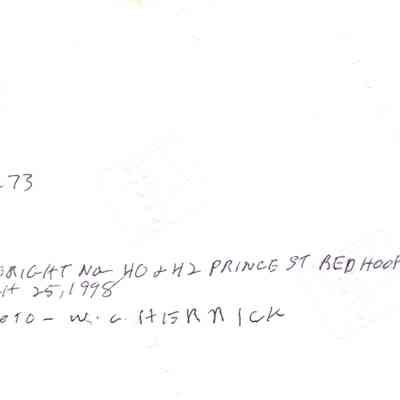 73
BRIGHT No HO & H2 PRINCE ST RED HOOK
25, 1998
OTO - W. C. HERRICK